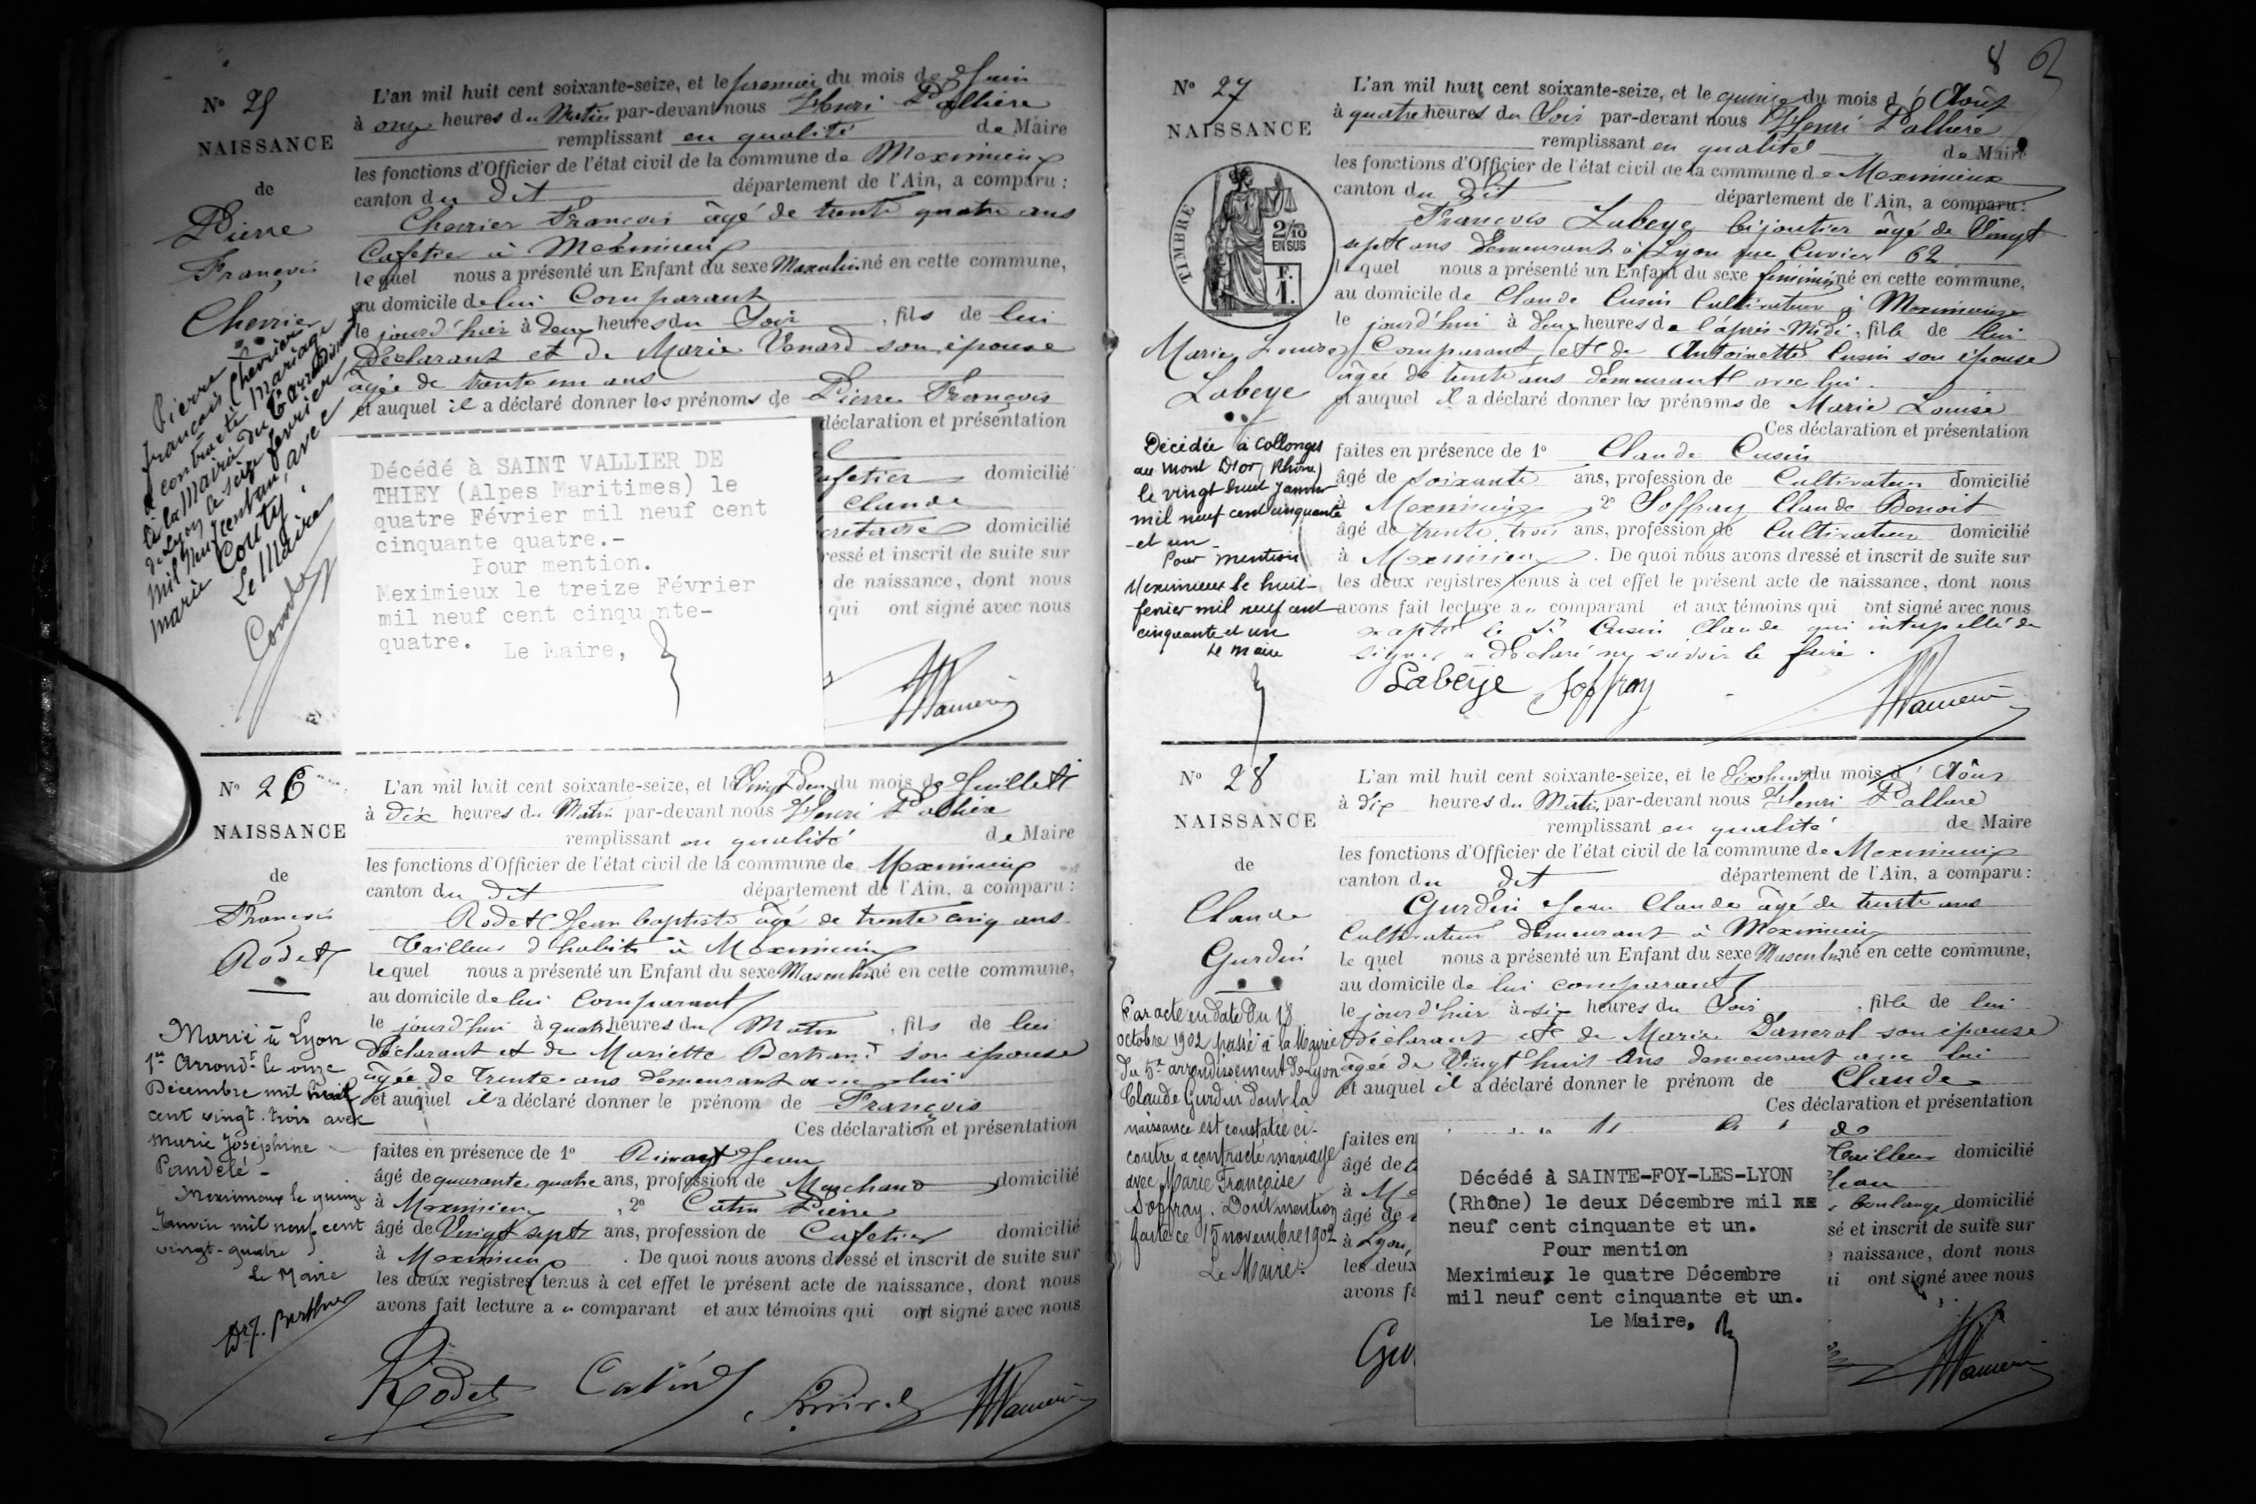 N° 25
NAISSANCE
de
Pierre
François
Cherrier
L'an mil huit cent soixante-seize, et le premier du mois de Juin
à onze heures du Matin par-devant nous Henri
remplissant en qualité de Maire
les fonctions d'Officier de l'état civil de la commune de Meximieux
canton du dit département de l'Ain, a comparu :
Cherrier François âgé de trente quatre ans
Cafetier à Meximieux
lequel nous a présenté un Enfant du sexe Masculin né en cette commune,
au domicile de lui Comparant
le jourd'hier à deux heures du Soir, fils de lui
Déclarant et de Marie Venard son épouse
âgée de trente un ans
et auquel il a déclaré donner les prénoms de Pierre François
déclaration et présentation
cafetier domicilié
Claude
domicilié
ressé et inscrit de suite sur
de naissance, dont nous
qui ont signé avec nous
Pierre
François Cherrier
a contracté mariage
à la Mairie du
de Lyon le seize février
mil neuf cent un, avec
Marie Couty.
Le Maire
Décédé à SAINT VALLIER DE
THIEY (Alpes Maritimes) le
quatre Février mil neuf cent
cinquante quatre.-
Pour mention.
Meximieux le treize Février
mil neuf cent cinquante-
quatre.
Le Maire,
N° 26
NAISSANCE
de
François
Rodet
L'an mil huit cent soixante-seize, et le Vingt Deux du mois de Juillet
à Dix heures du Matin par-devant nous Henri
remplissant en qualité de Maire
les fonctions d'Officier de l'état civil de la commune de Meximieux
canton du dit département de l'Ain, a comparu :
Rodet Jean baptiste âgé de trente cinq ans
Tailleur d'habits à Meximieux
lequel nous a présenté un Enfant du sexe Masculin né en cette commune,
au domicile de lui Comparant
le jourd'hui à quatre heures du Matin, fils de lui
déclarant et de Mariette Bertrand son épouse
âgée de Trente ans demeurant avec lui
et auquel il a déclaré donner le prénom de François
Ces déclaration et présentation
faites en présence de 1° Jean
âgé de quarante quatre ans, profession de Marchand domicilié
à Meximieux, 2° Catin Pierre
âgé de Vingt sept ans, profession de Cafetier domicilié
à Meximieux. De quoi nous avons dressé et inscrit de suite sur
les deux registres tenus à cet effet le présent acte de naissance, dont nous
avons fait lecture au comparant et aux témoins qui ont signé avec nous
Rodet Catin
Marié à Lyon
1er Arrondt le onze
Décembre mil neuf
cent vingt-trois avec
Marie Joséphine
Pandelé -
Meximieux le quinze
Janvier mil neuf cent
vingt-quatre
Le Maire
8
N° 27
NAISSANCE
TIMBRE
2/10
EN SUS
F.
1.
Marie Louise
Labeye
L'an mil huit cent soixante-seize, et le quinze du mois d'Août
à quatre heures du Soir par-devant nous Henri
remplissant en qualité de Maire
les fonctions d'Officier de l'état civil de la commune de Meximieux
canton du dit département de l'Ain, a comparu :
François Labeye bijoutier âgé de Vingt
sept ans demeurant à Lyon rue Cuvier 62
lequel nous a présenté un Enfant du sexe féminin né en cette commune,
au domicile de Claude Cusin Cultivateur à Meximieux
le jourd'hui à deux heures de l'après-Midi, fille de lui
Comparant, et de Antoinette Cusin son épouse
âgée de trente ans demeurant avec lui.
et auquel il a déclaré donner les prénoms de Marie Louise
Ces déclaration et présentation
faites en présence de 1° Claude Cusin
âgé de soixante ans, profession de Cultivateur domicilié
à Meximieux, 2° Joffray Claude Benoit
âgé de trente trois ans, profession de Cultivateur domicilié
à Meximieux. De quoi nous avons dressé et inscrit de suite sur
les deux registres tenus à cet effet le présent acte de naissance, dont nous
avons fait lecture au comparant et aux témoins qui ont signé avec nous
excepté le Sr Cusin Claude qui interpellé de
signer a déclaré ne savoir le faire.
Labeye Joffray
Décédée à Collonges
au Mont D'or (Rhône)
le vingt huit Janvier
mil neuf cent cinquante
-et un-
Pour mention
Meximieux le huit-
fevrier mil neuf cent
cinquante et un
Le Maire
N° 28
NAISSANCE
de
Claude
Gurdin
L'an mil huit cent soixante-seize, et le Dixhuit du mois d'Août
à dix heures du Matin par-devant nous Henri
remplissant en qualité de Maire
les fonctions d'Officier de l'état civil de la commune de Meximieux
canton du dit département de l'Ain, a comparu :
Gurdin Jean Claude âgé de trente ans
Cultivateur demeurant à Meximieux
lequel nous a présenté un Enfant du sexe Masculin né en cette commune,
au domicile de lui comparant
le jourd'hier à six heures du Soir, fils de lui
Déclarant et de Marie son épouse
âgée de Vingt huit Ans demeurant avec lui
et auquel il a déclaré donner le prénom de Claude
Ces déclaration et présentation
faites en
âgé de Tailleur domicilié
à Me
âgé de boulanger domicilié
à Lyon, sé et inscrit de suite sur
les deux naissance, dont nous
avons fa ui ont signé avec nous
Gu
Par acte en date du 18
octobre 1902 passé à la Mairie
du 5e arrondissement de Lyon
Claude Gurdin dont la
naissance est constatée ci-
contre a contracté mariage
avec Marie Françoise
Joffray. Dont mention
faite ce 15 novembre 1902
Le Maire:
Décédé à SAINTE-FOY-LES-LYON
(Rhône) le deux Décembre mil
neuf cent cinquante et un.
Pour mention
Meximieux le quatre Décembre
mil neuf cent cinquante et un.
Le Maire.